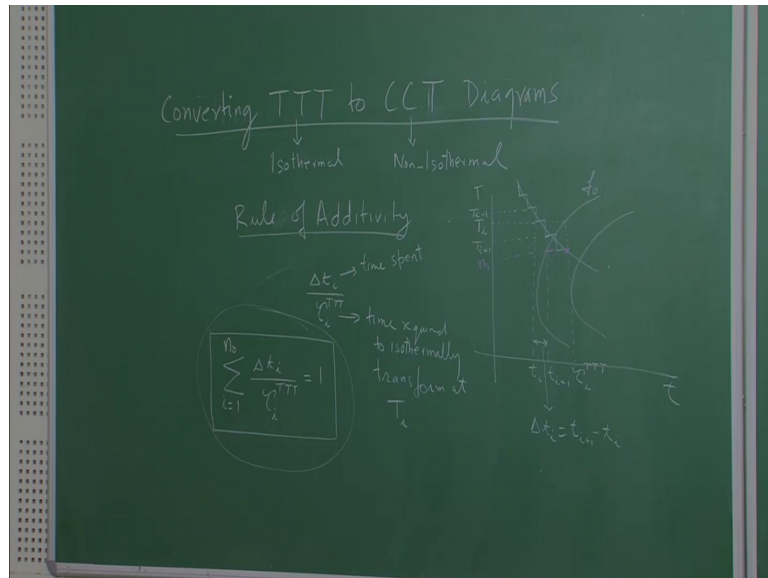 Converting TTT to CCT Diagrams
Isothermal
Non-Isothermal
Rule of Additivity
Δt_i → time spent
τ_i^TTT → time required
to isothermally
transform at
T_i
n_0
∑ Δt_i / τ_i^TTT = 1
i=1
f_0
T
T_{i-1}
T_i
T_{i+1}
t_i t_{i+1} τ_i^TTT
t
Δt_i = t_{i+1} - t_i